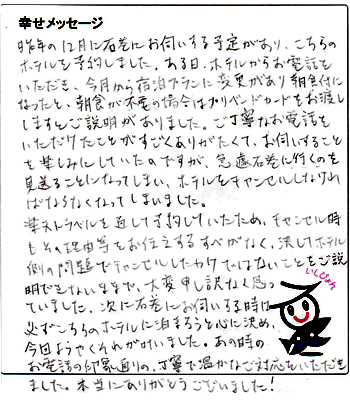 幸せメッセージ
昨年の12月に石巻にお伺いする予定があり、こちらの
ホテルを予約しました。ある日、ホテルからお電話を
いただき、今月から宿泊プランに変更があり朝食付に
なったと、朝食が不要の場合はプリペイドカードをお渡し
しますとご説明がありました。ご丁寧なお電話を
いただけたことがすごくありがたくて、お伺いすること
を楽しみにしていたのですが、急遽石巻に行くのを
見送ることになってしまい、ホテルをキャンセルしなけれ
ばならなくなってしまいました。
楽天トラベルを通して予約していたため、キャンセル時
もその理由等をお伝えするすべがなく、決してホテル
側の問題でキャンセルしたわけではないことをご説
明できないままで、大変申し訳なく思っ
ていました。次に石巻にお伺いする時は
必ずこちらのホテルに泊まろうと心に決め、
今回ようやくそれが叶いました。あの時の
お電話の印象通りの、丁寧で温かなご対応をいただき
ました。本当にありがとうございました!